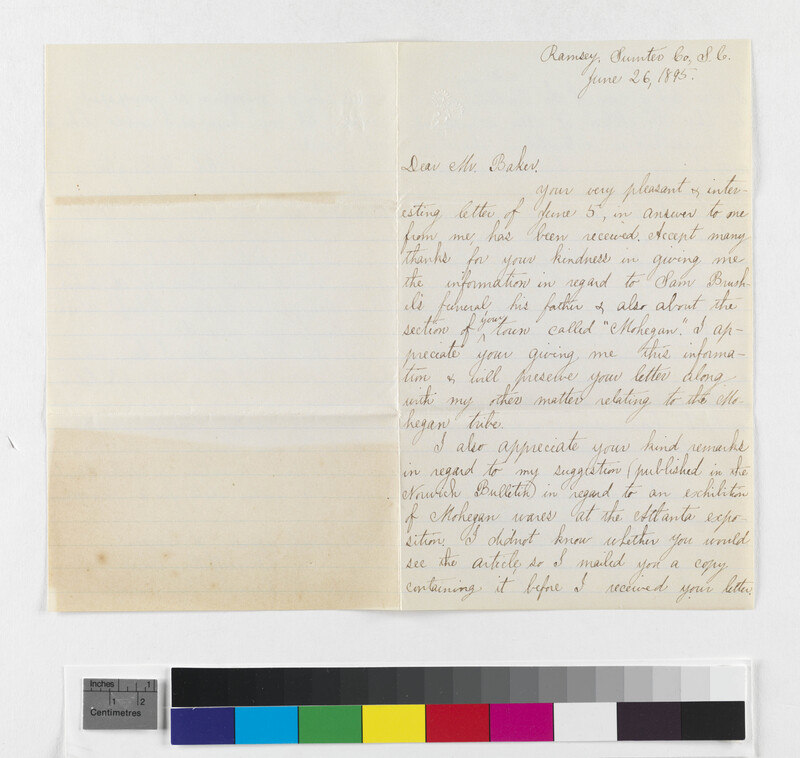 Ramsey, Sumter Co, S.C.
June 26, 1895.
Dear Mr. Baker.
Your very pleasant & inter-
esting letter of June 5, in answer to one
from me, has been received. Accept many
thanks for your kindness in giving me
the information in regard to Sam Brush-
el's funeral, his father & also about the
section of your town called "Mohegan." I ap-
preciate your giving me this informa-
tion & will preserve your letter along
with my other matter relating to the Mo-
hegan tribe.
I also appreciate your kind remarks
in regard to my suggestion (published in the
Norwich Bulletin) in regard to an exhibition
of Mohegan wares at the Atlanta expo-
sition. I didnot know whether you would
see the article, so I mailed you a copy
containing it before I received your letter.
Inches 1
1 2
Centimetres